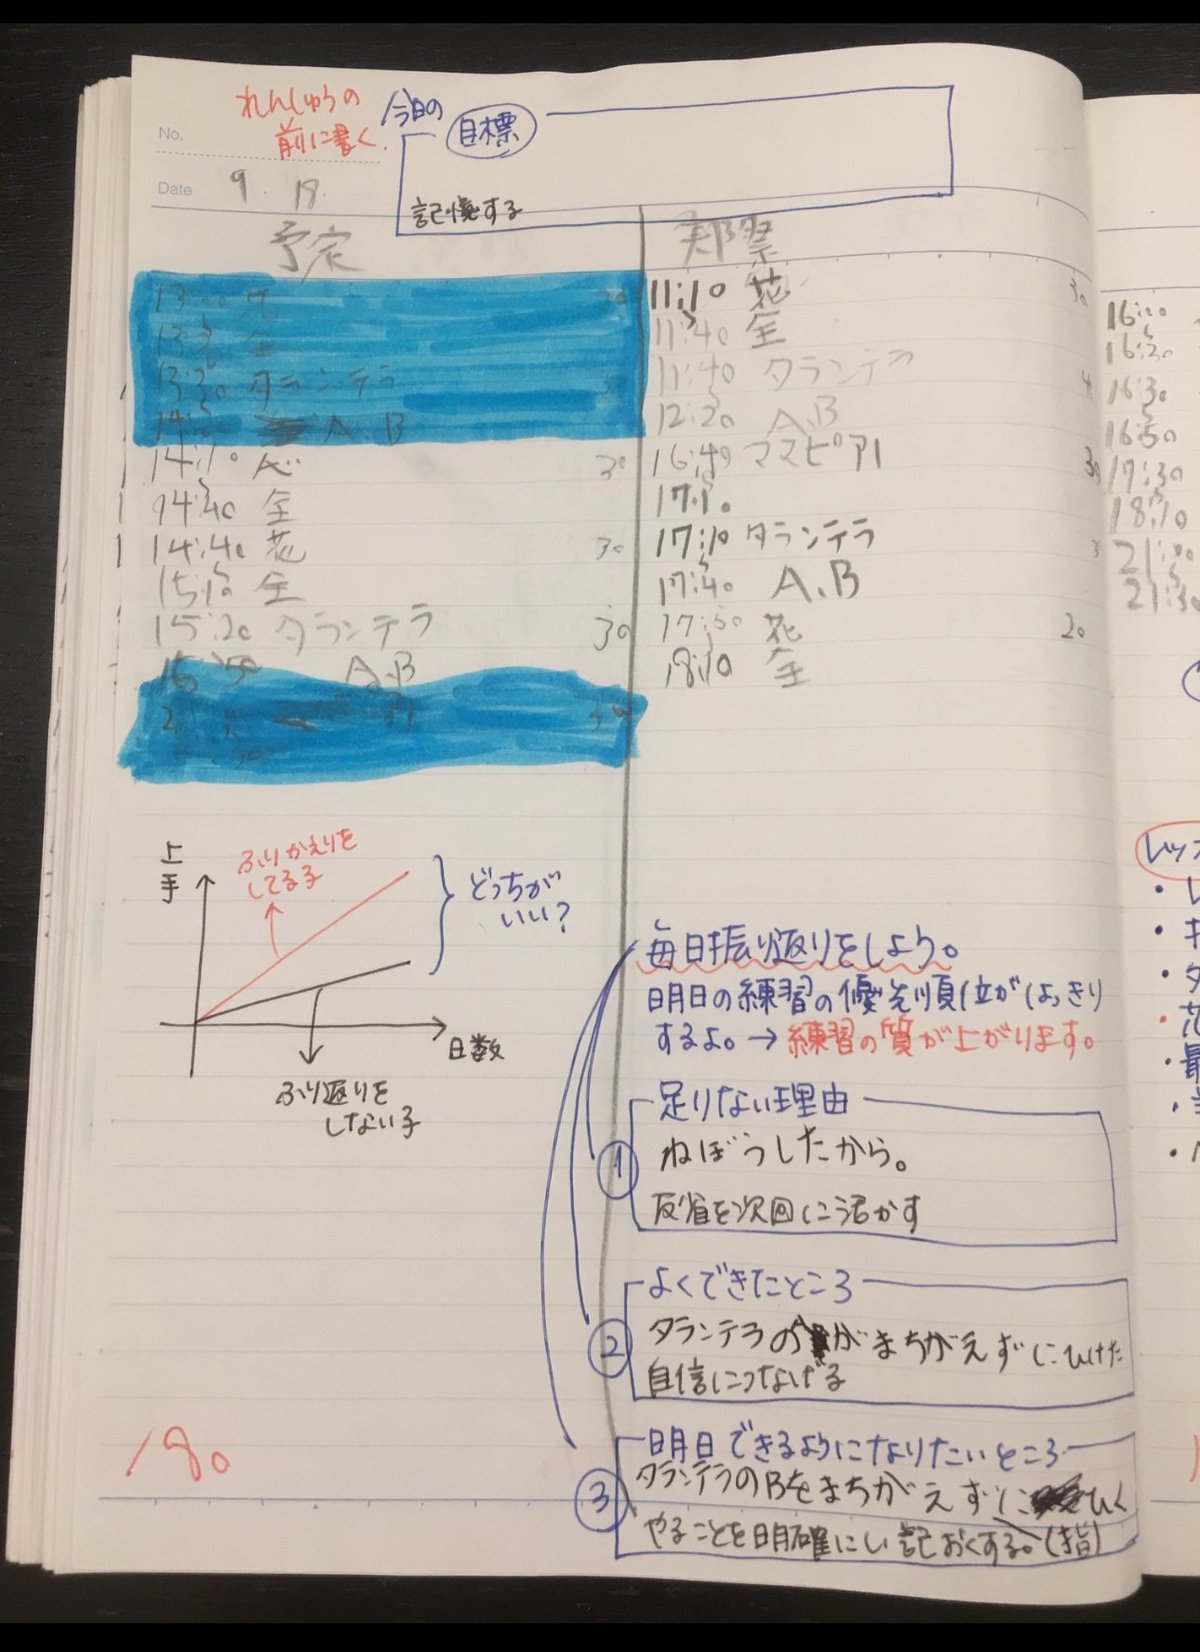 れんしゅうの
前に書く。
今日の
目標
No.
Date 9.18.
記憶する
予定
実際
13:30 タランテラ
A.B
14:10
14:40 全
14:40 花 30
15:10 全
15:20 タランテラ 30
A.B
11:10 花 30
11:40 全
11:40 タランテラ
12:20 A.B
16:40 ママピアノ 30
17:10
17:10 タランテラ
17:40 A.B
17:50 花 20
18:10 全
16:30
16:30
16:50
17:30
18:10
21:30
上手
ふりかえりを
してる子
どっちが
いい?
日数
ふり返りを
しない子
毎日振り返りをしよう。
明日の練習の優先順位がはっきり
するよ。→練習の質が上がります。
足りない理由
① ねぼうしたから。
反省を次回に活かす
よくできたところ
② タランテラのがまちがえずにひけた
自信につなげる
明日できるようになりたいところ
③ タランテラのBをまちがえずにひく
やることを明確にし記おくする。(指)
/80